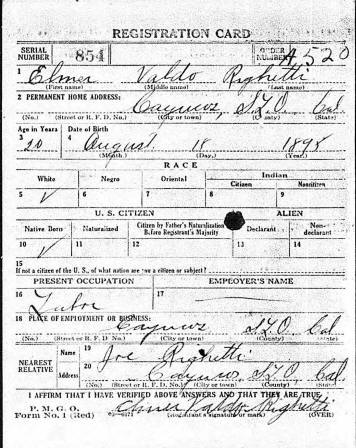 REGISTRATION CARD
SERIAL NUMBER 854 ORDER NUMBER A 520
1 Elmer Valdo Righetti
(First name) (Middle name) (Last name)
2 PERMANENT HOME ADDRESS:
Cayucos, S.L.O. Cal
(No.) (Street or R. F. D. No.) (City or town) (County) (State)
Age in Years Date of Birth
3 20 4 August 18 1898
(Month.) (Day.) (Year.)
RACE
White Negro Oriental Indian
Citizen Noncitizen
5 √ 6 7 8 9
U. S. CITIZEN ALIEN
Native Born Naturalized Citizen by Father's Naturalization Before Registrant's Majority Declarant Non-declarant
10 √ 11 12 13 14
15
If not a citizen of the U. S., of what nation are you a citizen or subject?
PRESENT OCCUPATION EMPLOYER'S NAME
16 Labor 17
18 PLACE OF EMPLOYMENT OR BUSINESS:
Cayucos S.L.O. Cal
(No.) (Street or R. F. D. No.) (City or town) (County) (State)
NEAREST RELATIVE Name 19 Joe Righetti
Address 20 Cayucos, S.L.O, Cal.
(No.) (Street or R. F. D. No.) (City or town) (County) (State)
I AFFIRM THAT I HAVE VERIFIED ABOVE ANSWERS AND THAT THEY ARE TRUE
P. M. G. O.
Form No. 1 (Red) Elmer Valdo Righetti
(Registrant's signature or mark) (OVER)